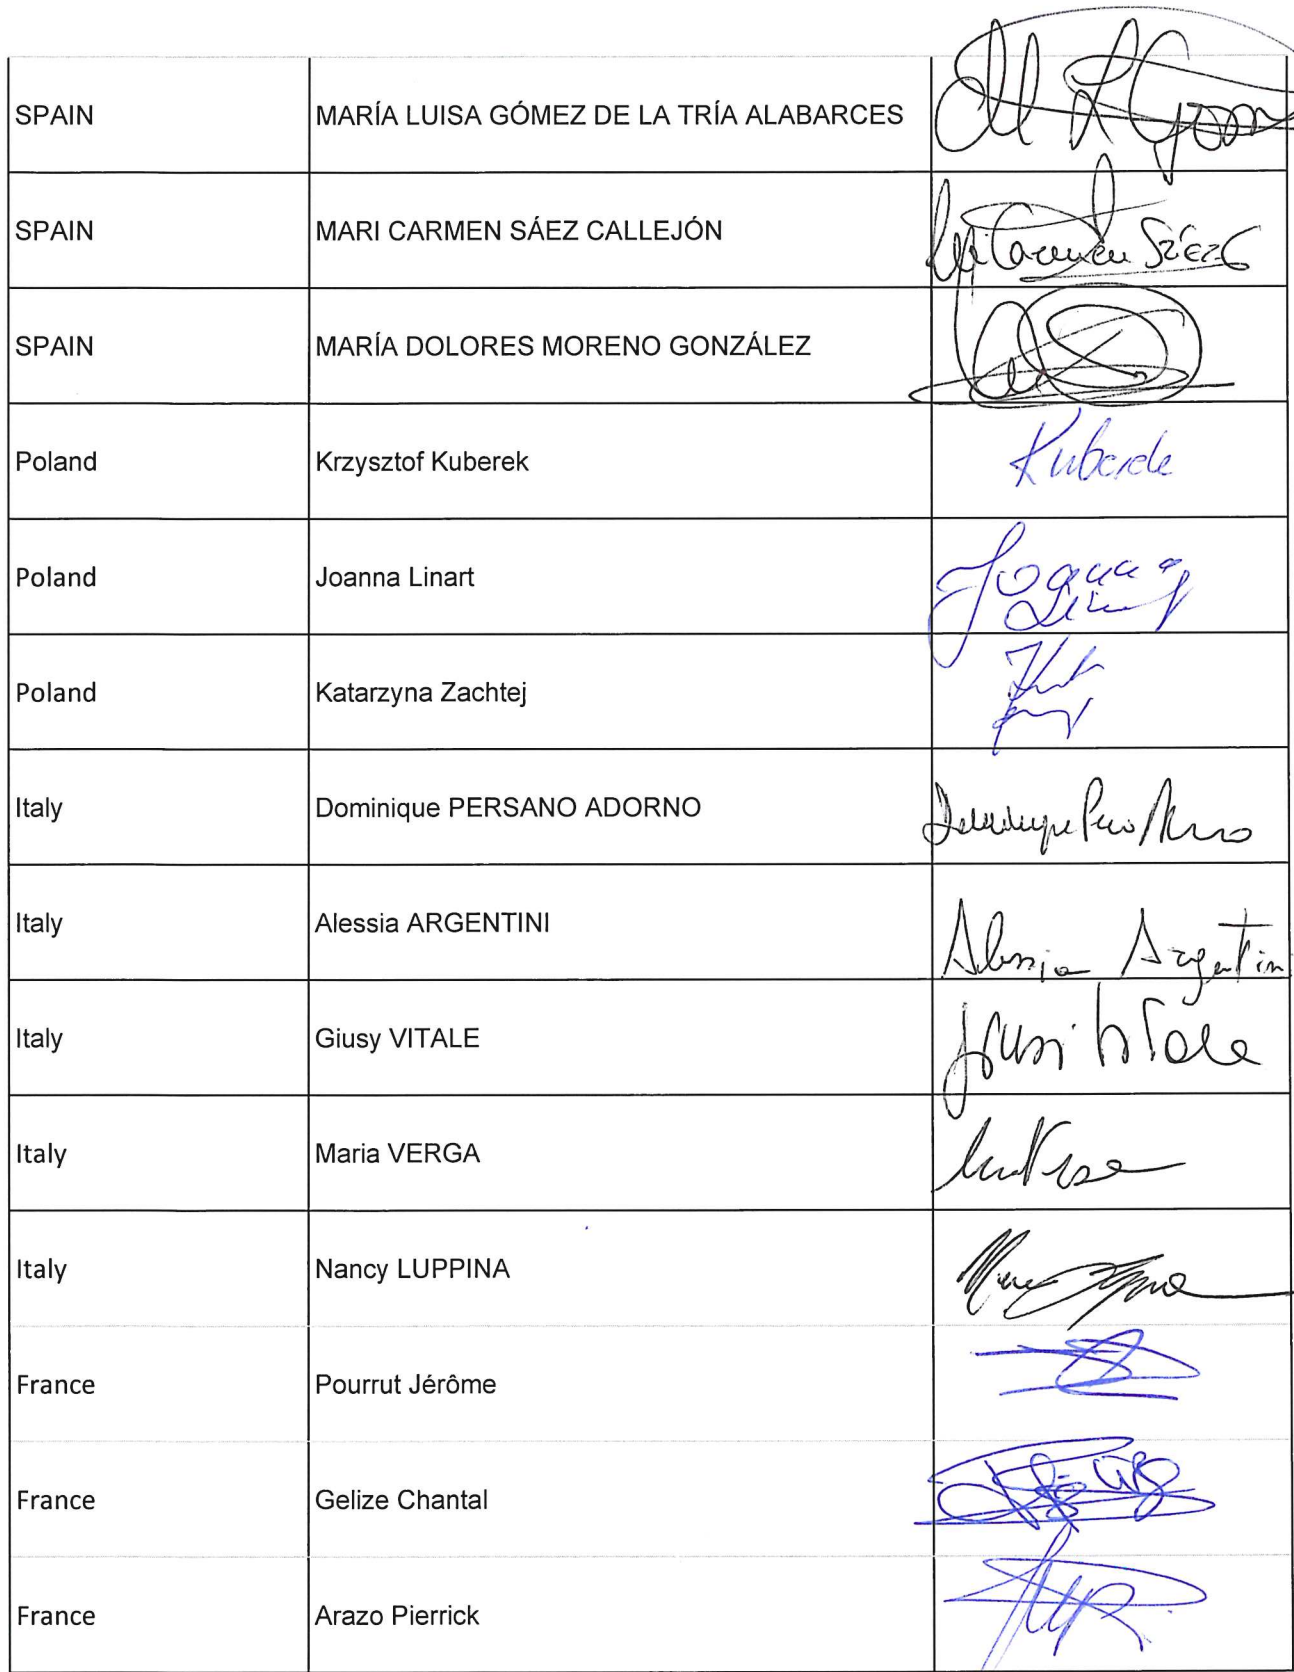 SPAIN MARÍA LUISA GÓMEZ DE LA TRÍA ALABARCES
SPAIN MARI CARMEN SÁEZ CALLEJÓN
SPAIN MARÍA DOLORES MORENO GONZÁLEZ
Poland Krzysztof Kuberek
Poland Joanna Linart Joanna
Poland Katarzyna Zachtej
Italy Dominique PERSANO ADORNO
Italy Alessia ARGENTINI Alessia Argentin
Italy Giusy VITALE
Italy Maria VERGA
Italy Nancy LUPPINA
France Pourrut Jérôme
France Gelize Chantal
France Arazo Pierrick